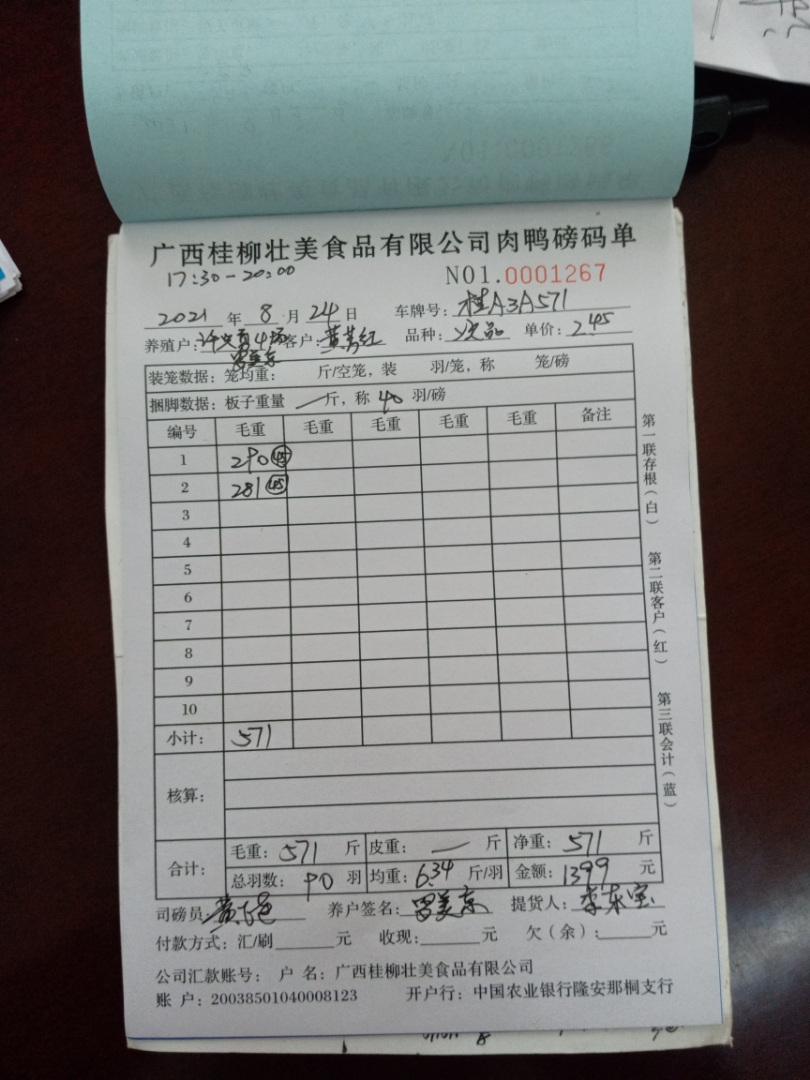 广西桂柳壮美食品有限公司肉鸭磅码单
17:30-20:00
NO1.0001267
2021 年 8 月 24 日 车牌号: 桂A3A571
养殖户: 4场 罗美东 客户: 黄 红 品种: 次品 单价: 2.45
装笼数据: 笼均重: 斤/空笼, 装 羽/笼, 称 笼/磅
捆脚数据: 板子重量 — 斤, 称 40 羽/磅
编号 毛重 毛重 毛重 毛重 毛重 备注
1 290 45
2 281 45
3
4
5
6
7
8
9
10
小计: 571
核算:
合计: 毛重: 571 斤 皮重: — 斤 净重: 571 斤
总羽数: 90 羽 均重: 6.34 斤/羽 金额: 1399 元
司磅员: 黄 养户签名: 罗美东 提货人: 李东宝
付款方式: 汇/刷 元 收现: 元 欠(余): 元
公司汇款账号: 户 名: 广西桂柳壮美食品有限公司
账 户: 20038501040008123 开户行: 中国农业银行隆安那桐支行
第一联存根(白)
第二联客户(红)
第三联会计(蓝)